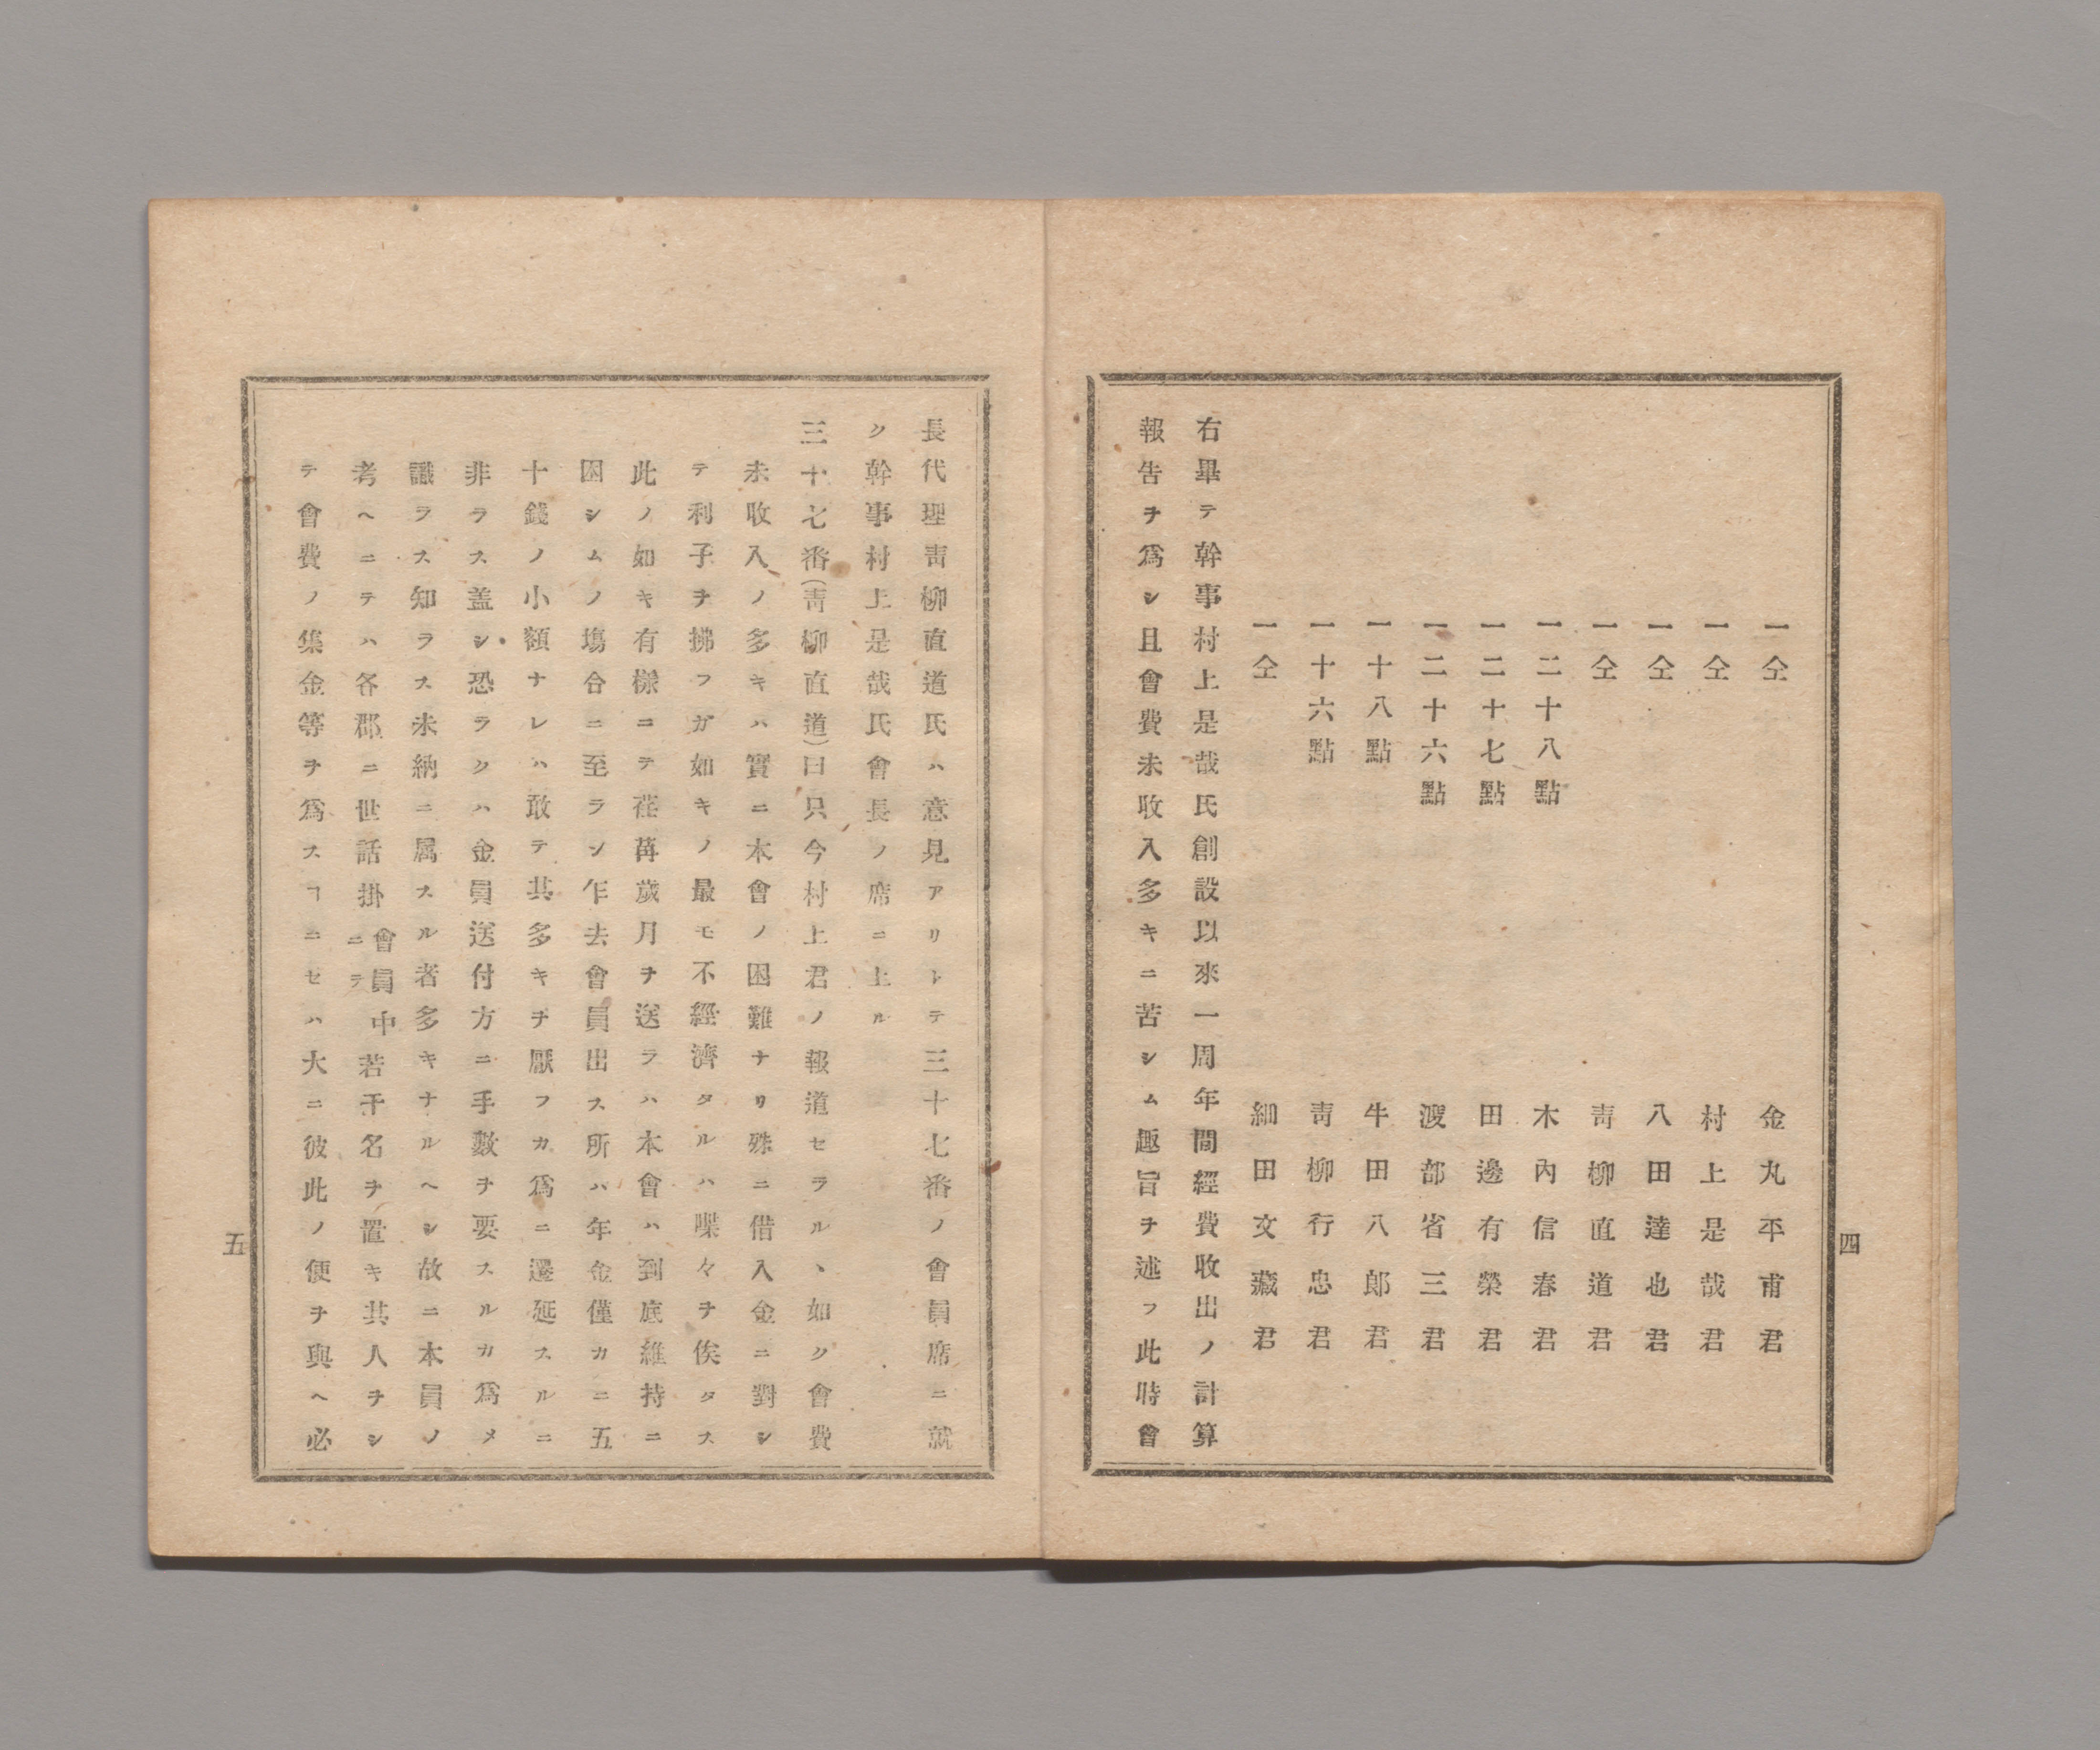 一仝　金丸平甫君
一仝　村上是哉君
一仝　八田達也君
一仝　靑柳直道君
一二十八點　木內信春君
一二十七點　田邊有榮君
一二十六點　渡部省三君
一十八點　牛田八郞君
一十六點　靑柳行忠君
一仝　細田文藏君
右畢テ幹事村上是哉氏創設以來一周年間經費收出ノ計算
報告ヲ爲シ且會費未收入多キニ苦シム趣旨ヲ述フ此時會
四
長代理靑柳直道氏ハ意見アリトテ三十七番ノ會員席ニ就
ク幹事村上是哉氏會長ノ席ニ上ル
三十七番(靑柳直道)曰只今村上君ノ報道セラルヽ如ク會費
未收入ノ多キハ實ニ本會ノ困難ナリ殊ニ借入金ニ對シ
テ利子ヲ拂フガ如キノ最モ不經濟タルハ喋々ヲ俟タス
此ノ如キ有樣コテ荏苒歲月ヲ送ラハ本會ハ到底維持ニ
困シムノ塲合ニ至ラン乍去會員出ス所ハ年金僅カニ五
十錢ノ小額ナレハ敢テ其多キヲ厭フカ爲ニ遷延スルニ
非ラス蓋シ恐ラクハ金員送付方ニ手數ヲ要スルカ爲メ
識ラス知ラス未納ニ属スル者多キナルヘシ故ニ本員ノ
考ヘニテハ各郡ニ世話掛會員中ニテ若干名ヲ置キ其人ヲシ
テ會費ノ集金等ヲ爲スヿニセハ大ニ彼此ノ便ヲ與ヘ必
五